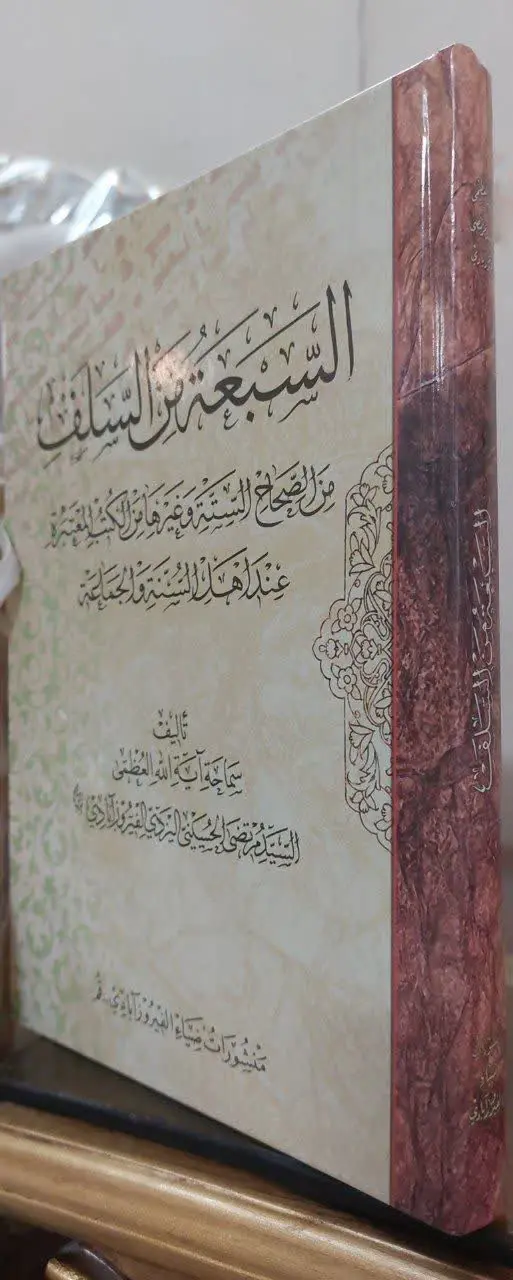 السَّبعَةُ مِنَ السَّلَفِ
مِنَ الصِّحَاحِ السِّتَّةِ وَغَيْرِهَا مِنَ الكُتُبِ المُعْتَبَرَةِ
عِنْدَ اَهْلِ السُّنَّةِ وَالجَمَاعَةِ
تَأليف
سَمَاحَةِ آيَةِ اللهِ العُظمىٰ
السَّيِّد مُرتَضىٰ الحُسَينِي اليَزدِي الفَيرُوزآبَادِي
مَنْشُورَاتُ ضِيَاءِ الفَيرُوزآبَادِي - قُم
السبعة من السلف